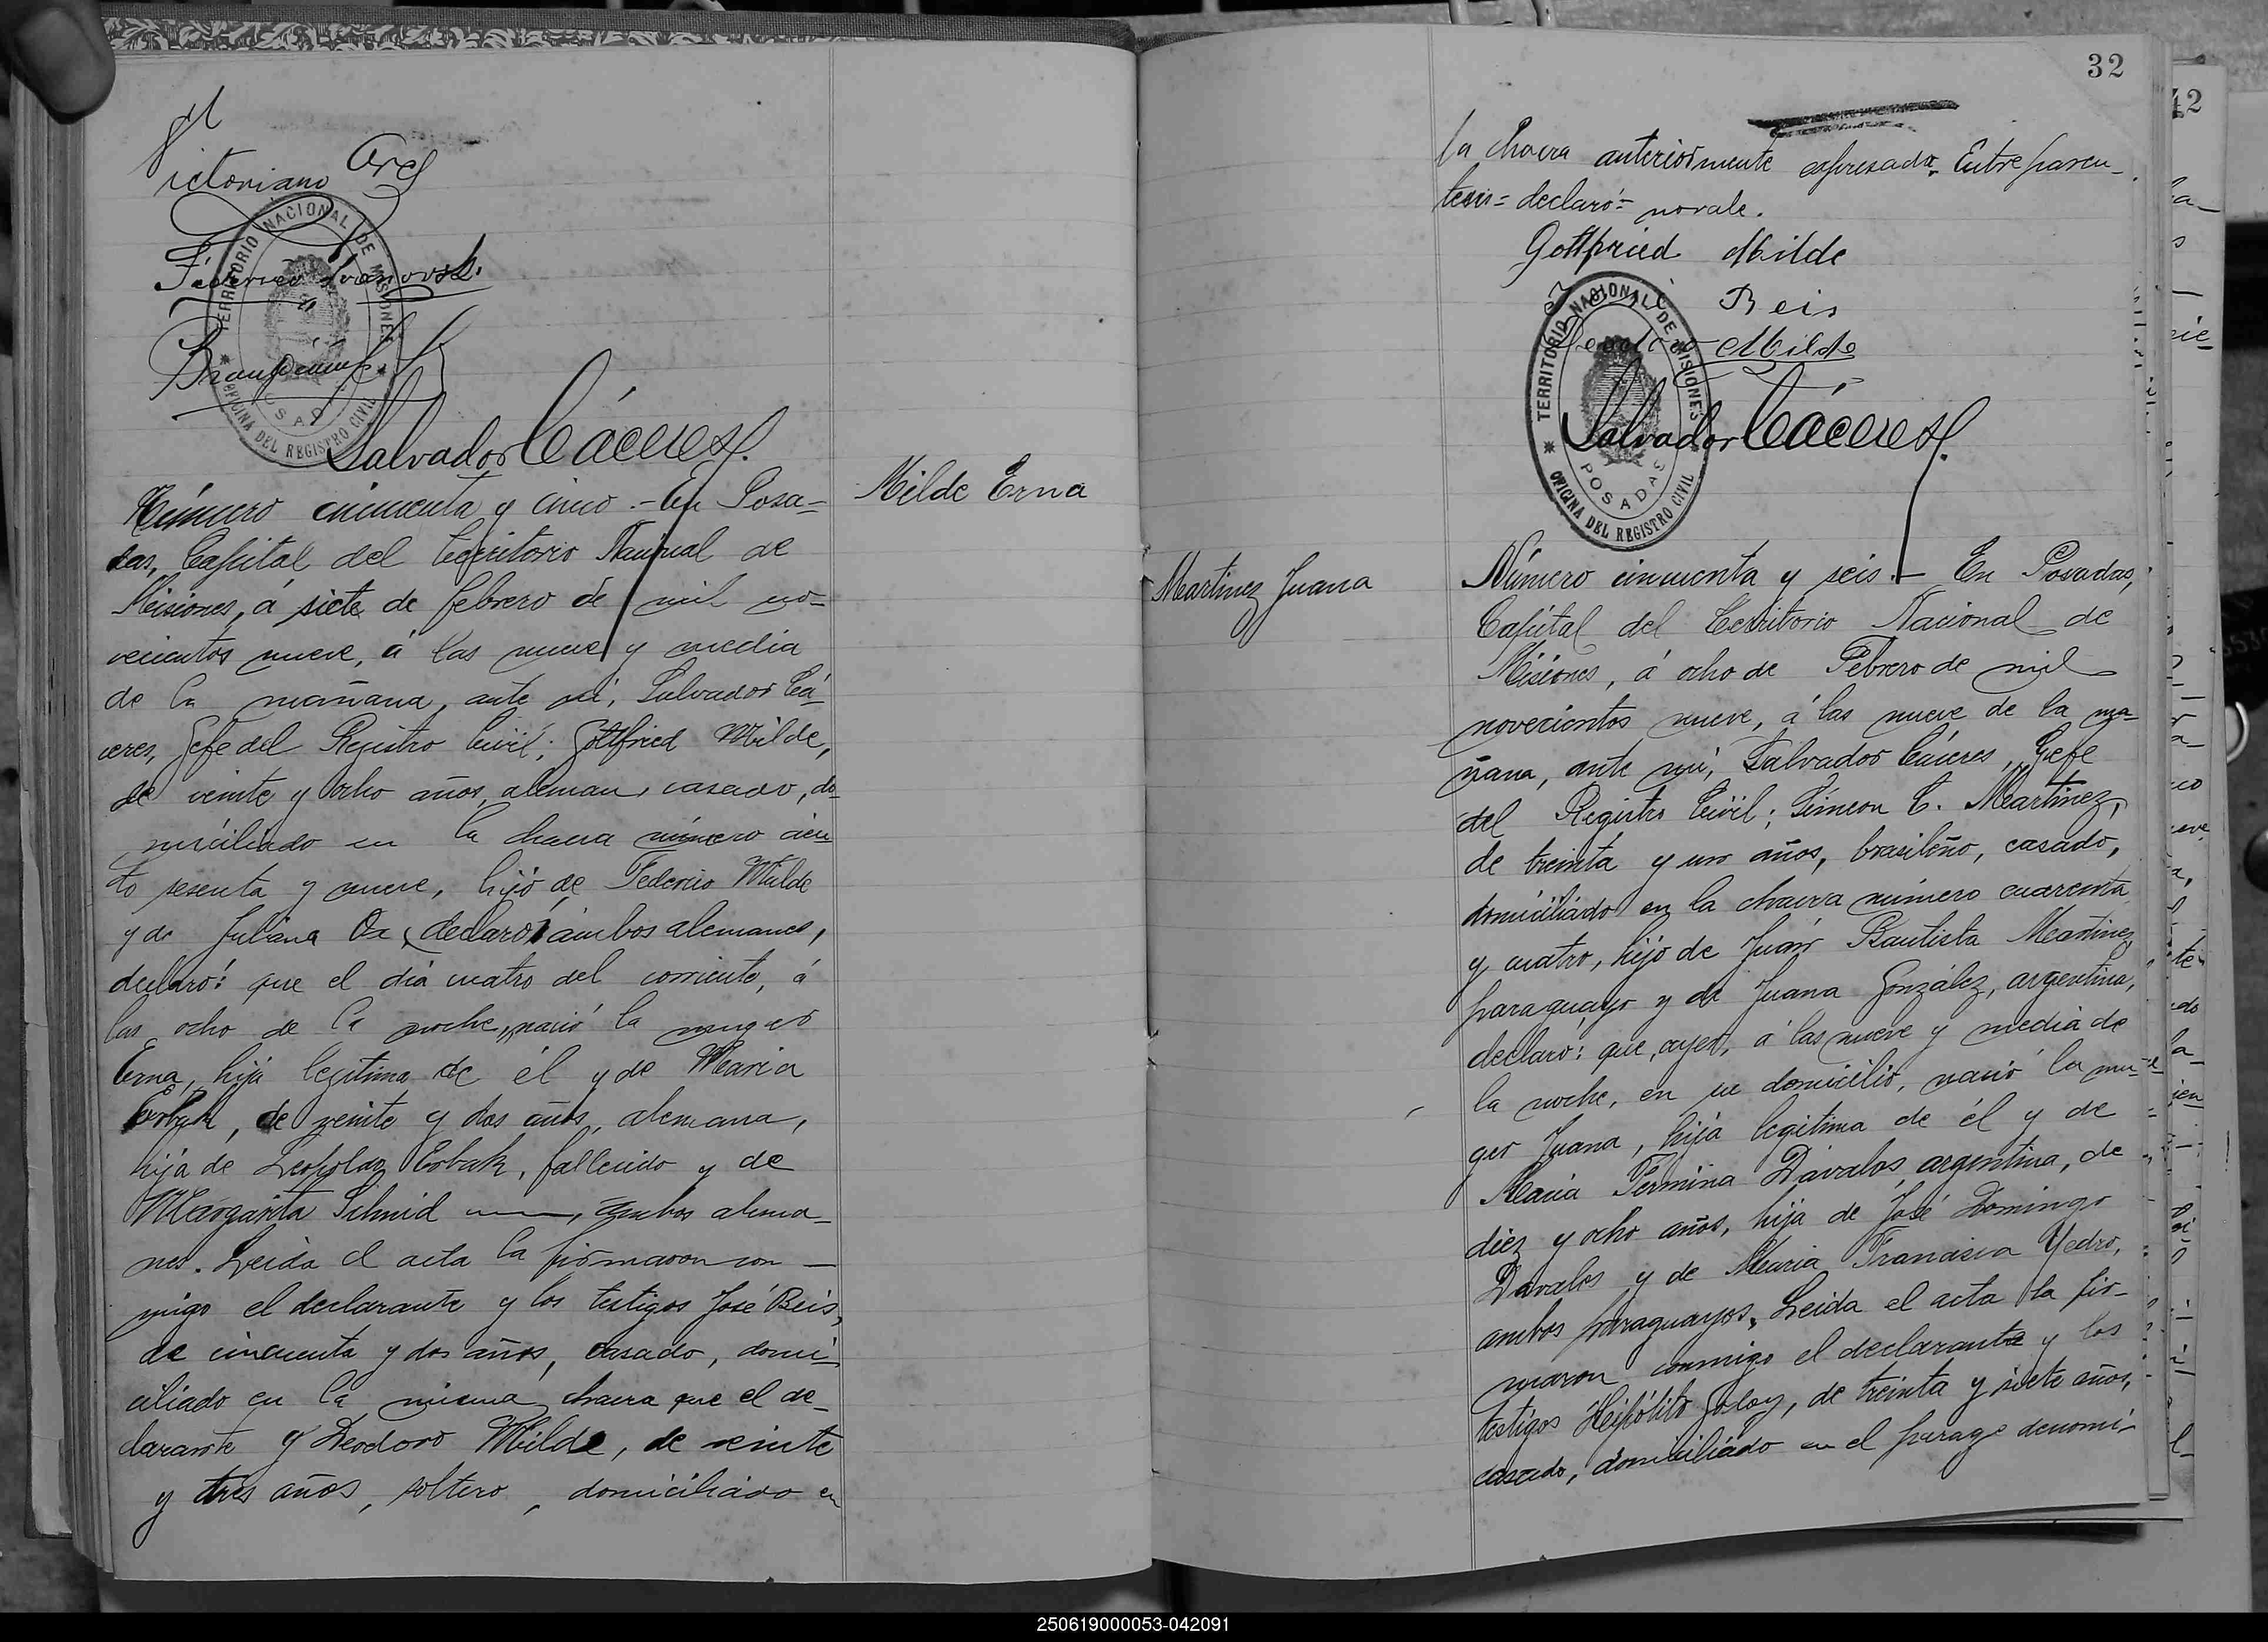 Victoriano Arce
TERRITORIO NACIONAL DE MISIONES
POSADAS
OFICINA DEL REGISTRO CIVIL
Salvador Cáceres
Milde Erna
Número cincuenta y cinco.- En Posa=
das, Capital del Territorio Nacional de
Misiones, á siete de febrero de mil no-
vecientos nueve, á las nueve y media
de la mañana, ante mi, Salvador Cá-
ceres, Gefe del Registro Civil; Gottfried Milde,
de veinte y ocho años, aleman, casado, do-
miciliado en la chacra número cien-
to sesenta y nueve, hijo de Federico Milde
y de Juliana Ox (declaró) ambos alemanes,
declaró: que el dia cuatro del corriente, á
las ocho de la noche, nació la muger
Erna, hija legitima de él y de Maria
Erbak, de veinte y dos años, alemana,
hija de Leopoldo Erbak, fallecido y de
Margarita Schmid ——, ambos alema-
nes. Leida el acta la firmaron con-
migo el declarante y los testigos José Beis,
de cincuenta y dos años, casado, domi-
ciliado en la misma chacra que el de-
clarante y Deodoro Milde, de veinte
y tres años, soltero, domiciliado en
32
la chacra anteriormente expresada. Entre paren-
tesis= declaró= no vale.
Gottfried Milde
Beis
Milde
TERRITORIO NACIONAL DE MISIONES
POSADAS
OFICINA DEL REGISTRO CIVIL
Salvador Cáceres
Martinez Juana
Número cincuenta y seis.- En Posadas,
Capital del Territorio Nacional de
Misiones, á ocho de Febrero de mil
novecientos nueve, á las nueve de la ma-
ñana, ante mi, Salvador Cáceres, Gefe
del Registro Civil; Simeon C. Martinez,
de treinta y un años, brasileño, casado,
domiciliado en la chacra número cuarenta
y cuatro, hijo de Juan Bautista Martinez
paraguayo y de Juana González, argentina,
declaró: que, ayer, á las nueve y media de
la noche, en su domicilio, nació la mu-
ger Juana, hija legitima de él y de
Maria Fermina Dávalos, argentina, de
diez y ocho años, hija de José Domingo
Davalos y de Maria Francisca Yedro,
ambos paraguayos. Leida el acta la fir-
maron conmigo el declarante y los
testigos Heipólito Goloy, de treinta y siete años,
casado, domiciliado en el parage denomi-
42
250619000053-042091